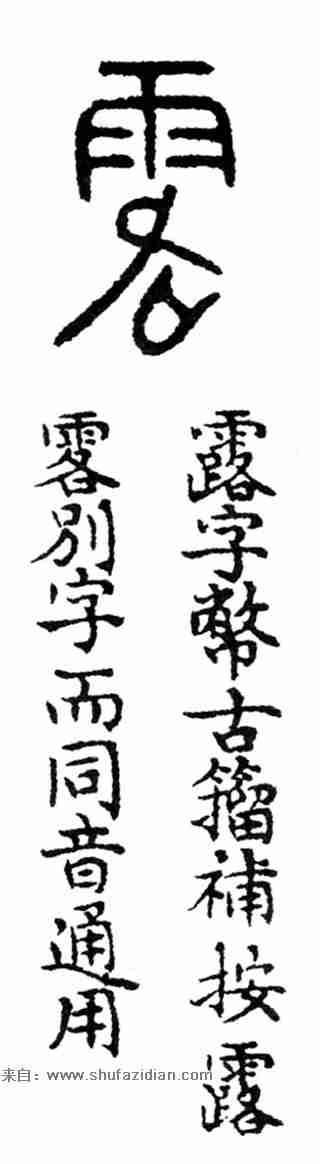 零
露字幣古籀補按露
零別字而同音通用
来自：www.shufazidian.com